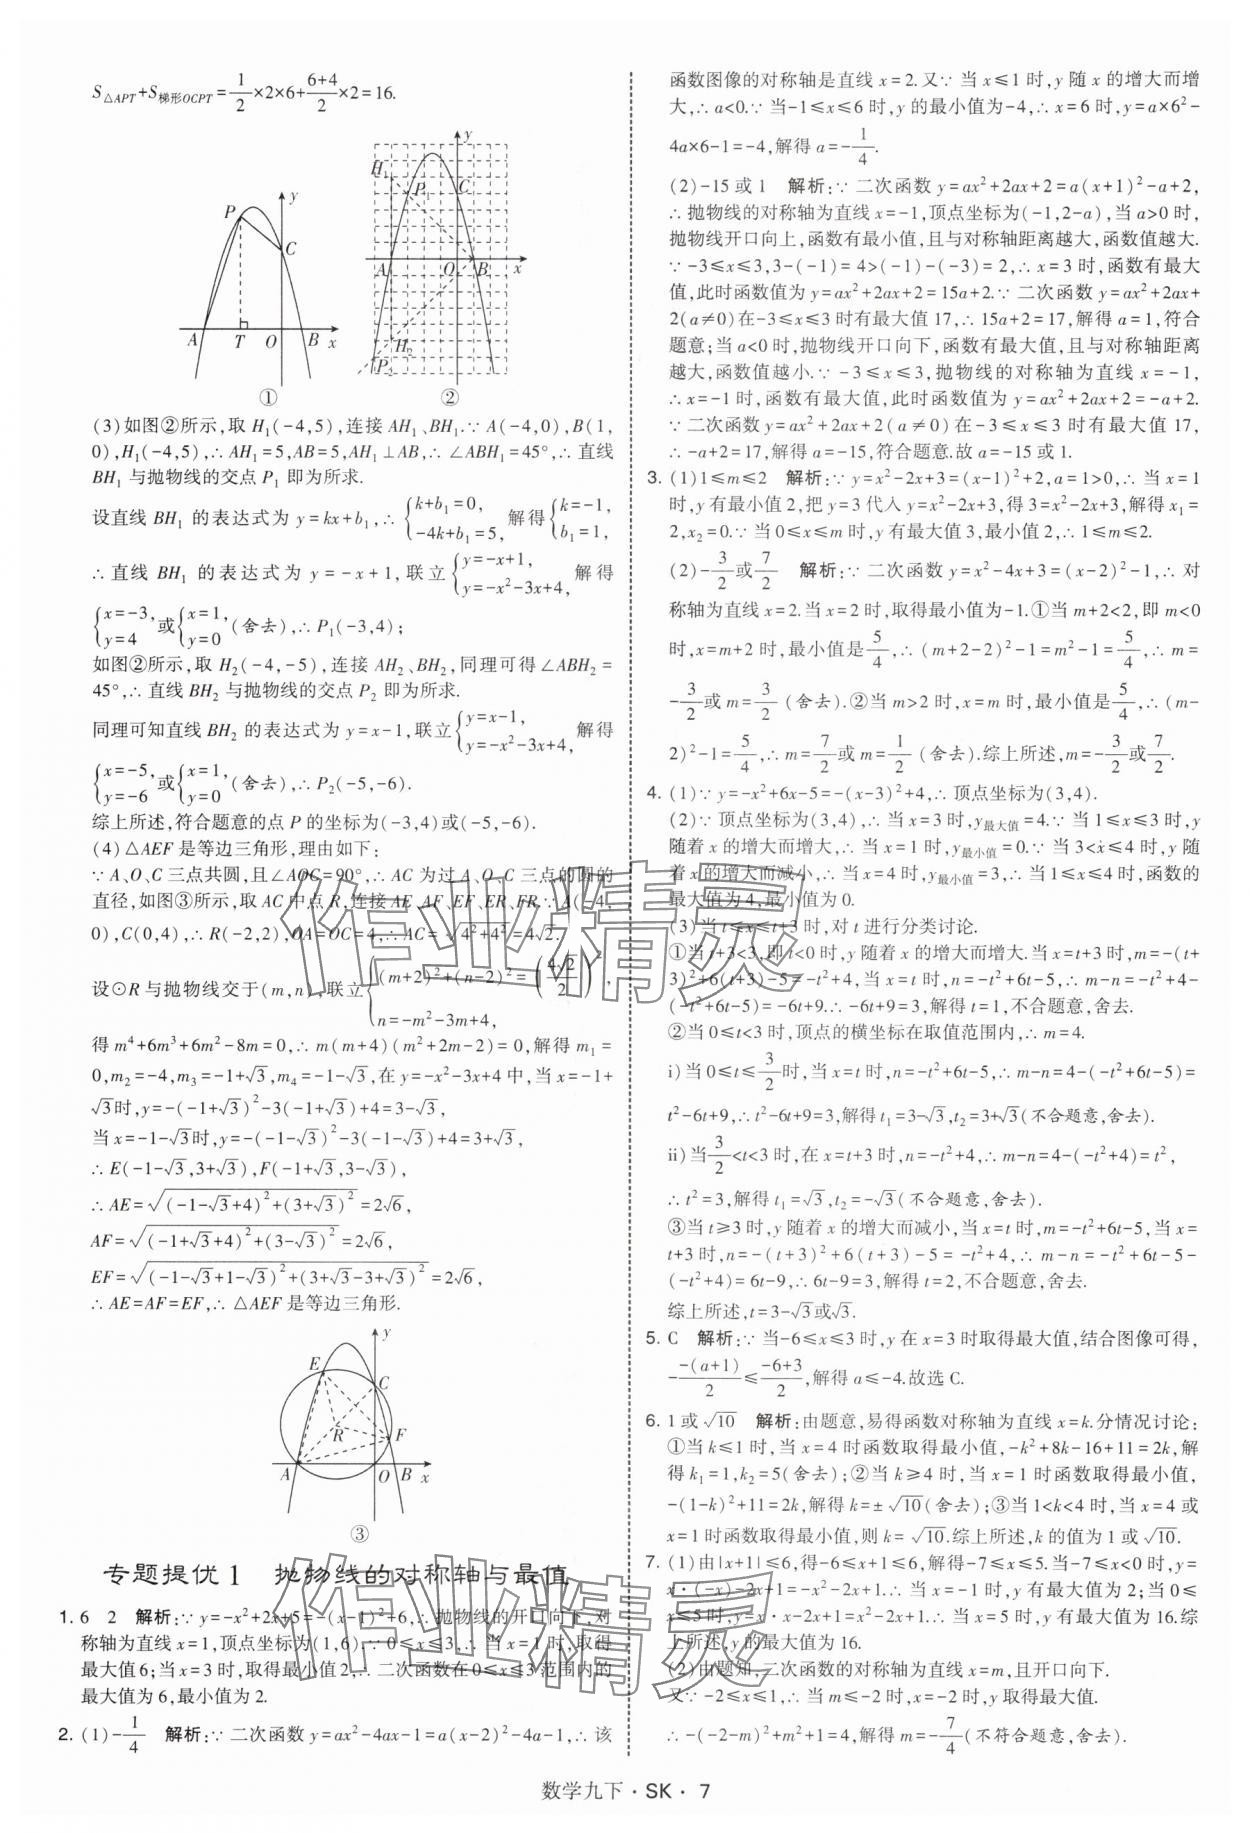 S△APT+S梯形OCPT=1/2×2×6+(6+4)/2×2=16.
① ②
(3)如图②所示,取 H₁(-4,5),连接 AH₁、BH₁.∵ A(-4,0),B(1,
0),H₁(-4,5),∴ AH₁=5,AB=5,AH₁⊥AB,∴ ∠ABH₁=45°,∴ 直线
BH₁ 与抛物线的交点 P₁ 即为所求.
设直线 BH₁ 的表达式为 y=kx+b₁,∴ {k+b₁=0, -4k+b₁=5, 解得{k=-1, b₁=1,
∴ 直线 BH₁ 的表达式为 y=-x+1,联立{y=-x+1, y=-x²-3x+4, 解得
{x=-3, y=4 或{x=1, y=0 (舍去),∴ P₁(-3,4);
如图②所示,取 H₂(-4,-5),连接 AH₂、BH₂,同理可得∠ABH₂=
45°,∴ 直线 BH₂ 与抛物线的交点 P₂ 即为所求.
同理可知直线 BH₂ 的表达式为 y=x-1,联立{y=x-1, y=-x²-3x+4, 解得
{x=-5, y=-6 或{x=1, y=0 (舍去),∴ P₂(-5,-6).
综上所述,符合题意的点 P 的坐标为(-3,4)或(-5,-6).
(4)△AEF 是等边三角形,理由如下:
∵A、O、C 三点共圆,且∠AOC=90°,∴ AC 为过 A、O、C 三点的圆的
直径,如图③所示,取 AC 中点 R,连接 AE、AF、EF、ER、FR.∵ A(-4,
0),C(0,4),∴ R(-2,2),OA=OC=4,∴ AC=√(4²+4²)=4√2.
设⊙R 与抛物线交于(m,n),联立{(m+2)²+(n-2)²=(4√2/2)², n=-m²-3m+4,
得 m⁴+6m³+6m²-8m=0,∴ m(m+4)(m²+2m-2)=0,解得 m₁=
0,m₂=-4,m₃=-1+√3,m₄=-1-√3,在 y=-x²-3x+4 中,当 x=-1+
√3时,y=-(-1+√3)²-3(-1+√3)+4=3-√3,
当 x=-1-√3时,y=-(-1-√3)²-3(-1-√3)+4=3+√3,
∴ E(-1-√3,3+√3),F(-1+√3,3-√3),
∴ AE=√((-1-√3+4)²+(3+√3)²)=2√6,
AF=√((-1+√3+4)²+(3-√3)²)=2√6,
EF=√((-1-√3+1-√3)²+(3+√3-3+√3)²)=2√6,
∴ AE=AF=EF,∴ △AEF 是等边三角形.
③
专题提优1 抛物线的对称轴与最值
1. 6 2 解析:∵ y=-x²+2x+5=-(x-1)²+6,∴ 抛物线的开口向下,对
称轴为直线 x=1,顶点坐标为(1,6).∵ 0≤x≤3,∴ 当 x=1 时,取得
最大值6;当 x=3 时,取得最小值2,∴ 二次函数在0≤x≤3范围内的
最大值为6,最小值为2.
2. (1)-1/4 解析:∵ 二次函数 y=ax²-4ax-1=a(x-2)²-4a-1,∴ 该
函数图像的对称轴是直线 x=2.又∵ 当 x≤1 时,y 随 x 的增大而增
大,∴ a<0.∵ 当-1≤x≤6 时,y 的最小值为-4,∴ x=6 时,y=a×6²-
4a×6-1=-4,解得 a=-1/4.
(2)-15 或 1 解析:∵ 二次函数 y=ax²+2ax+2=a(x+1)²-a+2,
∴ 抛物线的对称轴为直线 x=-1,顶点坐标为(-1,2-a),当 a>0 时,
抛物线开口向上,函数有最小值,且与对称轴距离越大,函数值越大.
∵ -3≤x≤3,3-(-1)=4>(-1)-(-3)=2,∴ x=3 时,函数有最大
值,此时函数值为 y=ax²+2ax+2=15a+2.∵ 二次函数 y=ax²+2ax+
2(a≠0)在-3≤x≤3 时有最大值 17,∴ 15a+2=17,解得 a=1,符合
题意;当 a<0 时,抛物线开口向下,函数有最大值,且与对称轴距离
越大,函数值越小.∵ -3≤x≤3,抛物线的对称轴为直线 x=-1,
∴ x=-1 时,函数有最大值,此时函数值为 y=ax²+2ax+2=-a+2.
∵ 二次函数 y=ax²+2ax+2(a≠0)在-3≤x≤3 时有最大值 17,
∴ -a+2=17,解得 a=-15,符合题意.故 a=-15 或 1.
3. (1)1≤m≤2 解析:∵ y=x²-2x+3=(x-1)²+2,a=1>0,∴ 当 x=1
时,y 有最小值 2,把 y=3 代入 y=x²-2x+3,得 3=x²-2x+3,解得 x₁=
2,x₂=0.∵ 当 0≤x≤m 时,y 有最大值 3,最小值 2,∴ 1≤m≤2.
(2)-3/2或7/2 解析:∵ 二次函数 y=x²-4x+3=(x-2)²-1,∴ 对
称轴为直线 x=2.当 x=2 时,取得最小值为-1.①当 m+2<2,即 m<0
时,x=m+2 时,最小值是5/4,∴ (m+2-2)²-1=m²-1=5/4,∴ m=
-3/2或 m=3/2(舍去).②当 m>2 时,x=m 时,最小值是5/4,∴ (m-
2)²-1=5/4,∴ m=7/2或 m=1/2(舍去).综上所述,m=-3/2或7/2.
4. (1)∵ y=-x²+6x-5=-(x-3)²+4,∴ 顶点坐标为(3,4).
(2)∵ 顶点坐标为(3,4),∴ 当 x=3 时,y最大值=4.∵ 当 1≤x≤3 时,y
随着 x 的增大而增大,∴ 当 x=1 时,y最小值=0.∵ 当 3<x≤4 时,y 随
着 x 的增大而减小,∴ 当 x=4 时,y最小值=3,∴ 当 1≤x≤4 时,函数的
最大值为4,最小值为0.
(3)当 t≤x≤t+3 时,对 t 进行分类讨论.
①当 t+3<3,即 t<0 时,y 随着 x 的增大而增大.当 x=t+3 时,m=-(t+
3)²+6(t+3)-5=-t²+4,当 x=t 时,n=-t²+6t-5,∴ m-n=-t²+4-
(-t²+6t-5)=-6t+9.∴ -6t+9=3,解得 t=1,不合题意,舍去.
②当 0≤t<3 时,顶点的横坐标在取值范围内,∴ m=4.
i)当 0≤t≤3/2时,当 x=t 时,n=-t²+6t-5,∴ m-n=4-(-t²+6t-5)=
t²-6t+9,∴ t²-6t+9=3,解得 t₁=3-√3,t₂=3+√3(不合题意,舍去).
ii)当3/2<t<3 时,在 x=t+3 时,n=-t²+4,∴ m-n=4-(-t²+4)=t²,
∴ t²=3,解得 t₁=√3,t₂=-√3(不合题意,舍去).
③当 t≥3 时,y 随着 x 的增大而减小,当 x=t 时,m=-t²+6t-5,当 x=
t+3 时,n=-(t+3)²+6(t+3)-5=-t²+4,∴ m-n=-t²+6t-5-
(-t²+4)=6t-9,∴ 6t-9=3,解得 t=2,不合题意,舍去.
综上所述,t=3-√3或√3.
5. C 解析:∵ 当-6≤x≤3 时,y 在 x=3 时取得最大值,结合图像可得,
-(-(a+1))/2≤(-6+3)/2,解得 a≤-4.故选 C.
6. 1 或√10 解析:由题意,易得函数对称轴为直线 x=k.分情况讨论:
①当 k≤1 时,当 x=4 时函数取得最小值,-k²+8k-16+11=2k,解
得 k₁=1,k₂=5(舍去);②当 k≥4 时,当 x=1 时函数取得最小值,
-(1-k)²+11=2k,解得 k=±√10(舍去);③当 1<k<4 时,当 x=4 或
x=1 时函数取得最小值,则 k=√10.综上所述,k 的值为 1 或√10.
7. (1)由|x+1|≤6,得-6≤x+1≤6,解得-7≤x≤5.当-7≤x<0 时,y=
x·(-x)-2x+1=-x²-2x+1.∴ 当 x=-1 时,y 有最大值为 2;当 0≤
x≤5 时,y=x·x-2x+1=x²-2x+1.∴ 当 x=5 时,y 有最大值为 16.综
上所述,y 的最大值为 16.
(2)由题知,二次函数的对称轴为直线 x=m,且开口向下.
又∵ -2≤x≤1,∴ 当 m≤-2 时,x=-2 时,y 取得最大值.
∴ -(-2-m)²+m²+1=4,解得 m=-7/4(不符合题意,舍去).
数学九下·SK·7
作业精灵
作业精灵